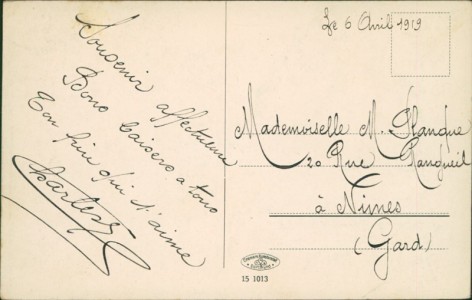 Le 6 Avril 1919
Souvenir affectueux
Bons baisers à tous
Ton frère qui t'aime
Charles
Mademoiselle M. Planque
20 Rue Rangueil
à Nimes
(Gard)
15 1013